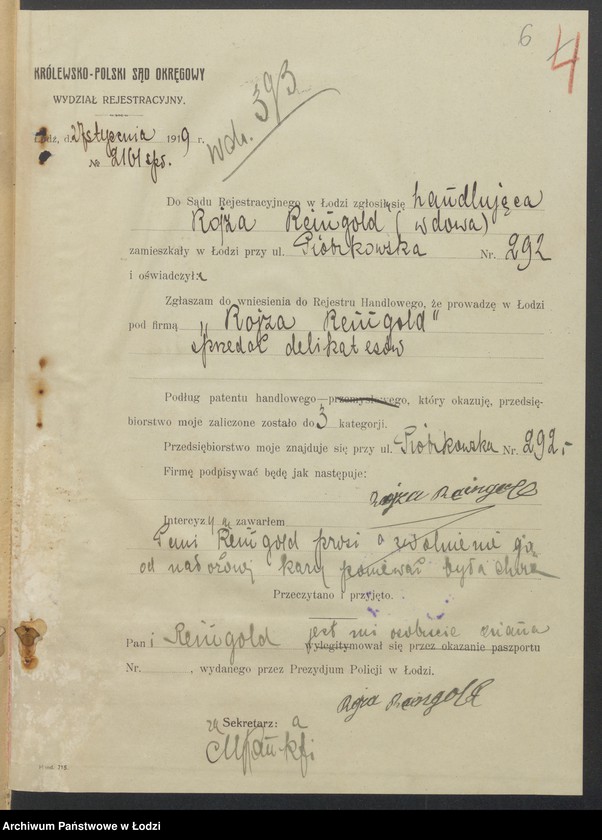 6 4
KRÓLEWSKO-POLSKI SĄD OKRĘGOWY
WYDZIAŁ REJESTRACYJNY.
Łódź, d. 27 stycznia 1919 r.
№ 2161
wdr. 393
Do Sądu Rejestracyjnego w Łodzi zgłosił się handlująca
Rojza Reingold (wdowa)
zamieszkały w Łodzi przy ul. Piotrkowska Nr. 292
i oświadczyła
Zgłaszam do wniesienia do Rejestru Handlowego, że prowadzę w Łodzi
pod firmą „Rojza Reingold"
sprzedaż delikatesów
Podług patentu handlowego—przemysłowego, który okazuję, przedsię-
biorstwo moje zaliczone zostało do 3 kategorji.
Przedsiębiorstwo moje znajduje się przy ul. Piotrkowska Nr. 292.-
Firmę podpisywać będę jak następuje:
Rojza Raingold
Intercyzy zawarłem
Pani Reingold prosi o zwolnienie ją
od kary ponieważ była chora
Przeczytano i przyjęto.
jest mi osobiście znana
Pani Reingold wylegitymował się przez okazanie paszportu
Nr. , wydanego przez Prezydjum Policji w Łodzi.
Rojza Raingold
za Sekretarz: a
Archiwum Państwowe w Łodzi